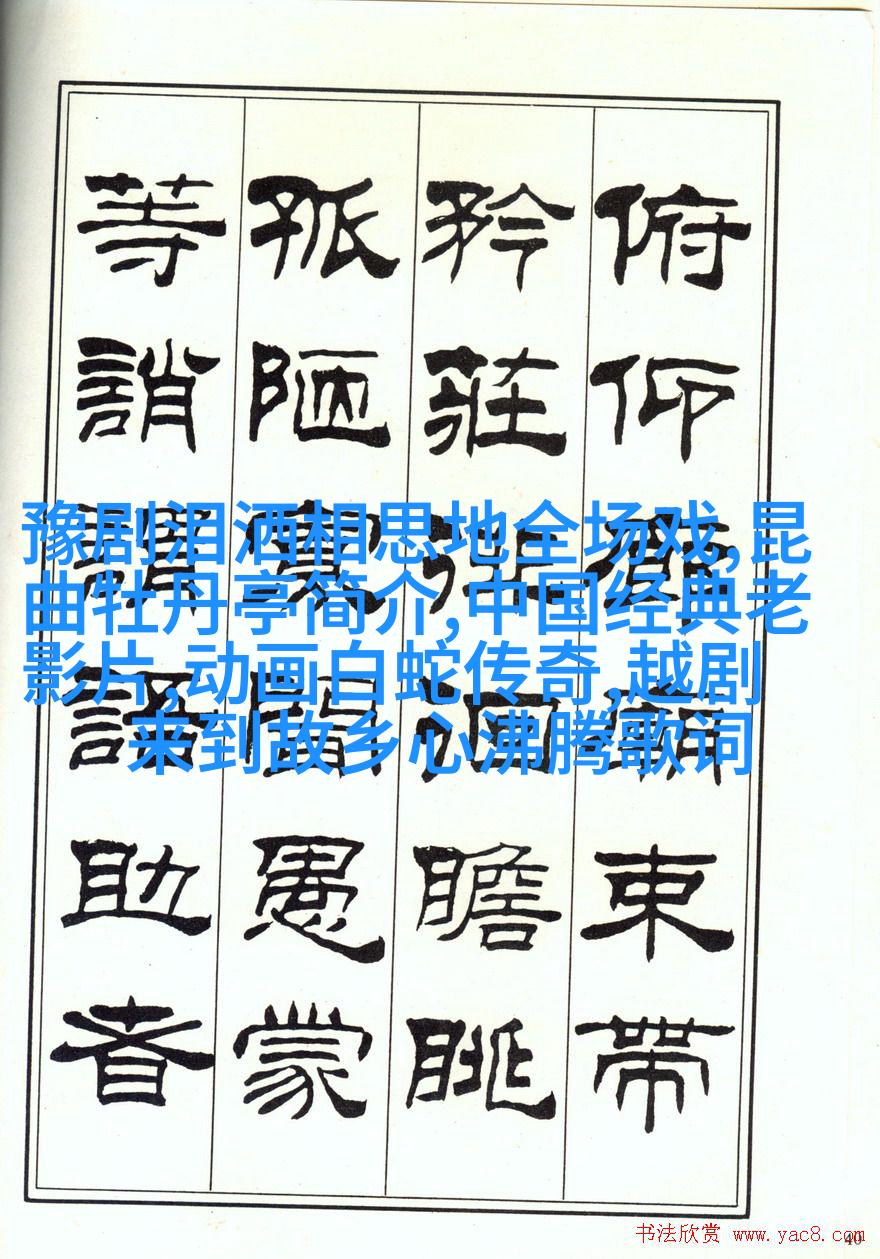 俯仰廊廟束帶
矜莊徘徊瞻眺
孤陋寡聞愚蒙
等誚謂語助者
豫剧泪洒相思地全场戏,昆
曲牡丹亭简介,中国经典老
影片,动画白蛇传奇,越剧
来到故乡心沸腾歌词
书法欣赏 www.yac8.com
40